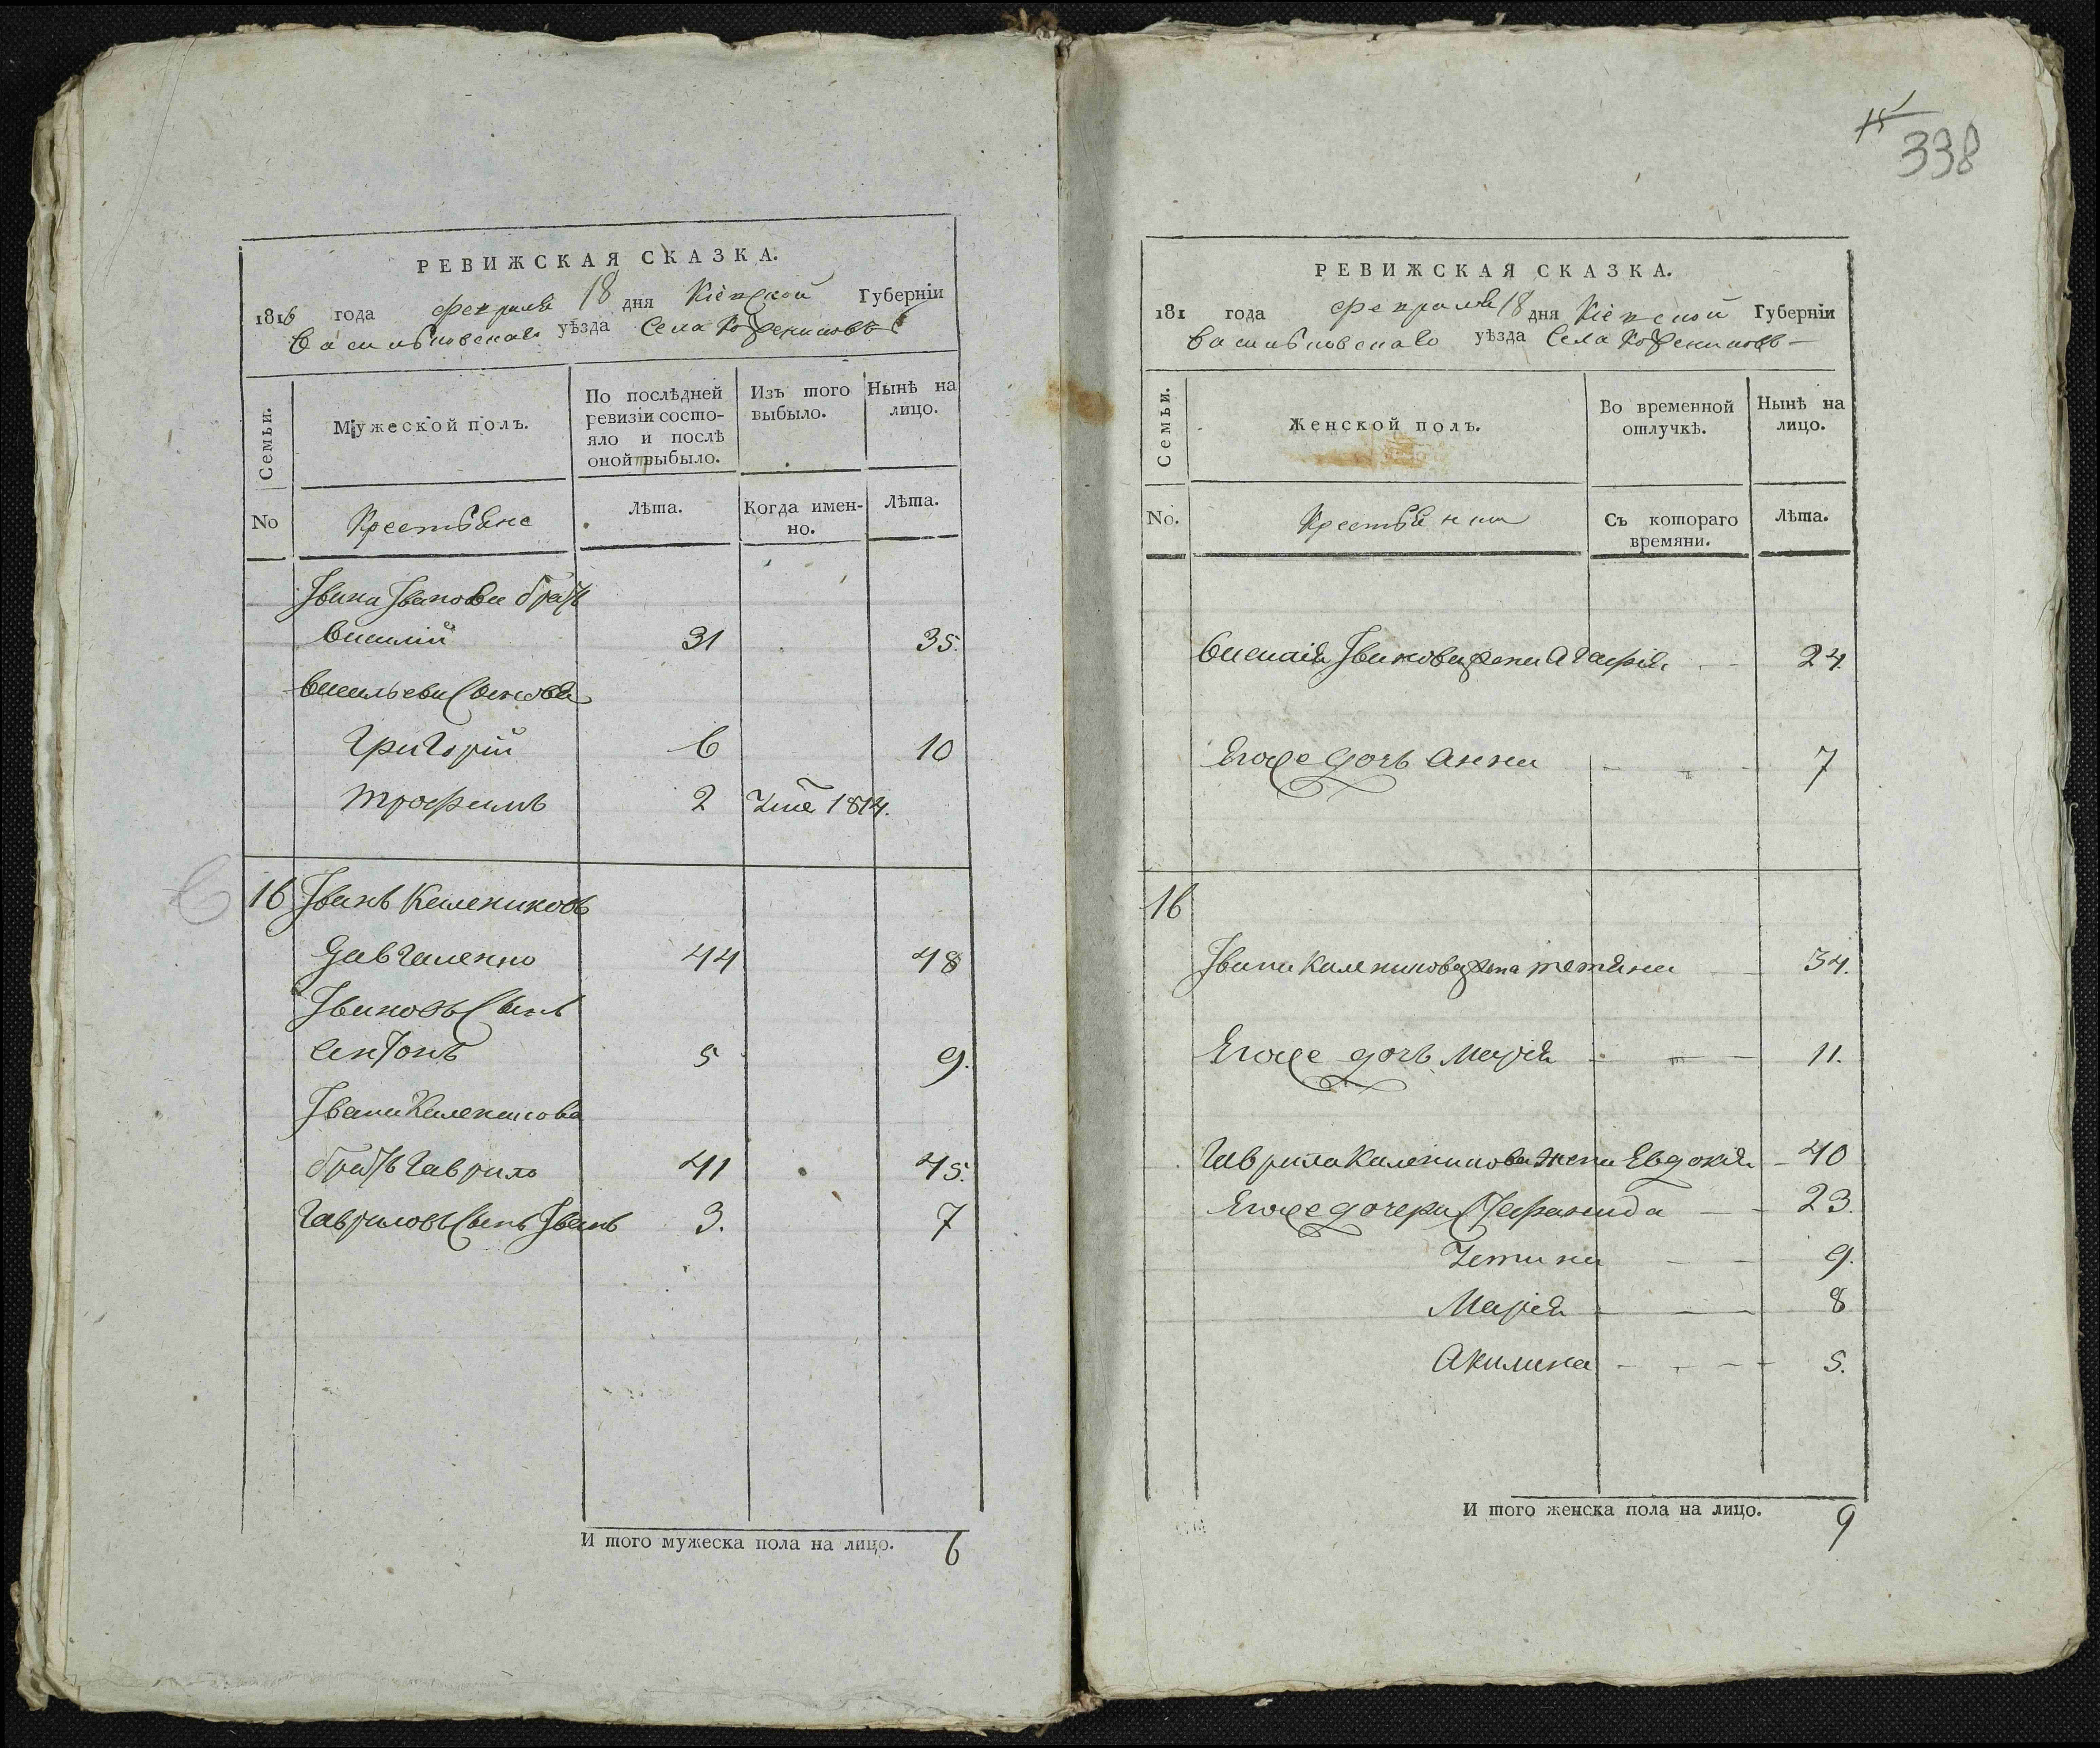 РЕВИЖСКАЯ СКАЗКА.
1816 года февраля 18 дня Кіевской Губерніи
Васильковскаго уѣзда Села
Семьи.
Мужеской полъ.
По послѣдней ревизіи состо-
яло и послѣ
оной выбыло.
Изъ того
выбыло.
Нынѣ на
лицо.
No
Крестьяне
Лѣта.
Когда имен-
но.
Лѣта.
Івана Іванова братъ
Василій 31 35.
Васильевы Сыновья
Григорій 6 10
Трофимъ 2 Уме 1814.
16 Іванъ Калениковъ
Давгаленко 44 48
Івановъ Сынъ
Антонъ 5 9.
Івана Каленикова
братъ Гаврило 41 45.
Гавриловъ Сынъ Іванъ 3. 7
И того мужеска пола на лицо. 6
15
338
РЕВИЖСКАЯ СКАЗКА.
181 года февраля 18 дня Кіевской Губерніи
Васильковскаго уѣзда Села
Семьи.
Женской полъ.
Во временной
отлучкѣ.
Нынѣ на
лицо.
No.
Крестьянки
Съ котораго
времяни.
Лѣта.
Василія Іванова жена Агафія - - 24
Егоже дочь Анна - - - 7
16
Івана Каленикова жена Тетяна - 34.
Егоже дочь Марія - - - 11.
Гаврила Каленикова жена Евдокія - 40
Егоже дочери Стефанида - - 23.
Устина - - 9.
Марія - - - 8
Акилина - - - - 5.
И того женска пола на лицо. 9